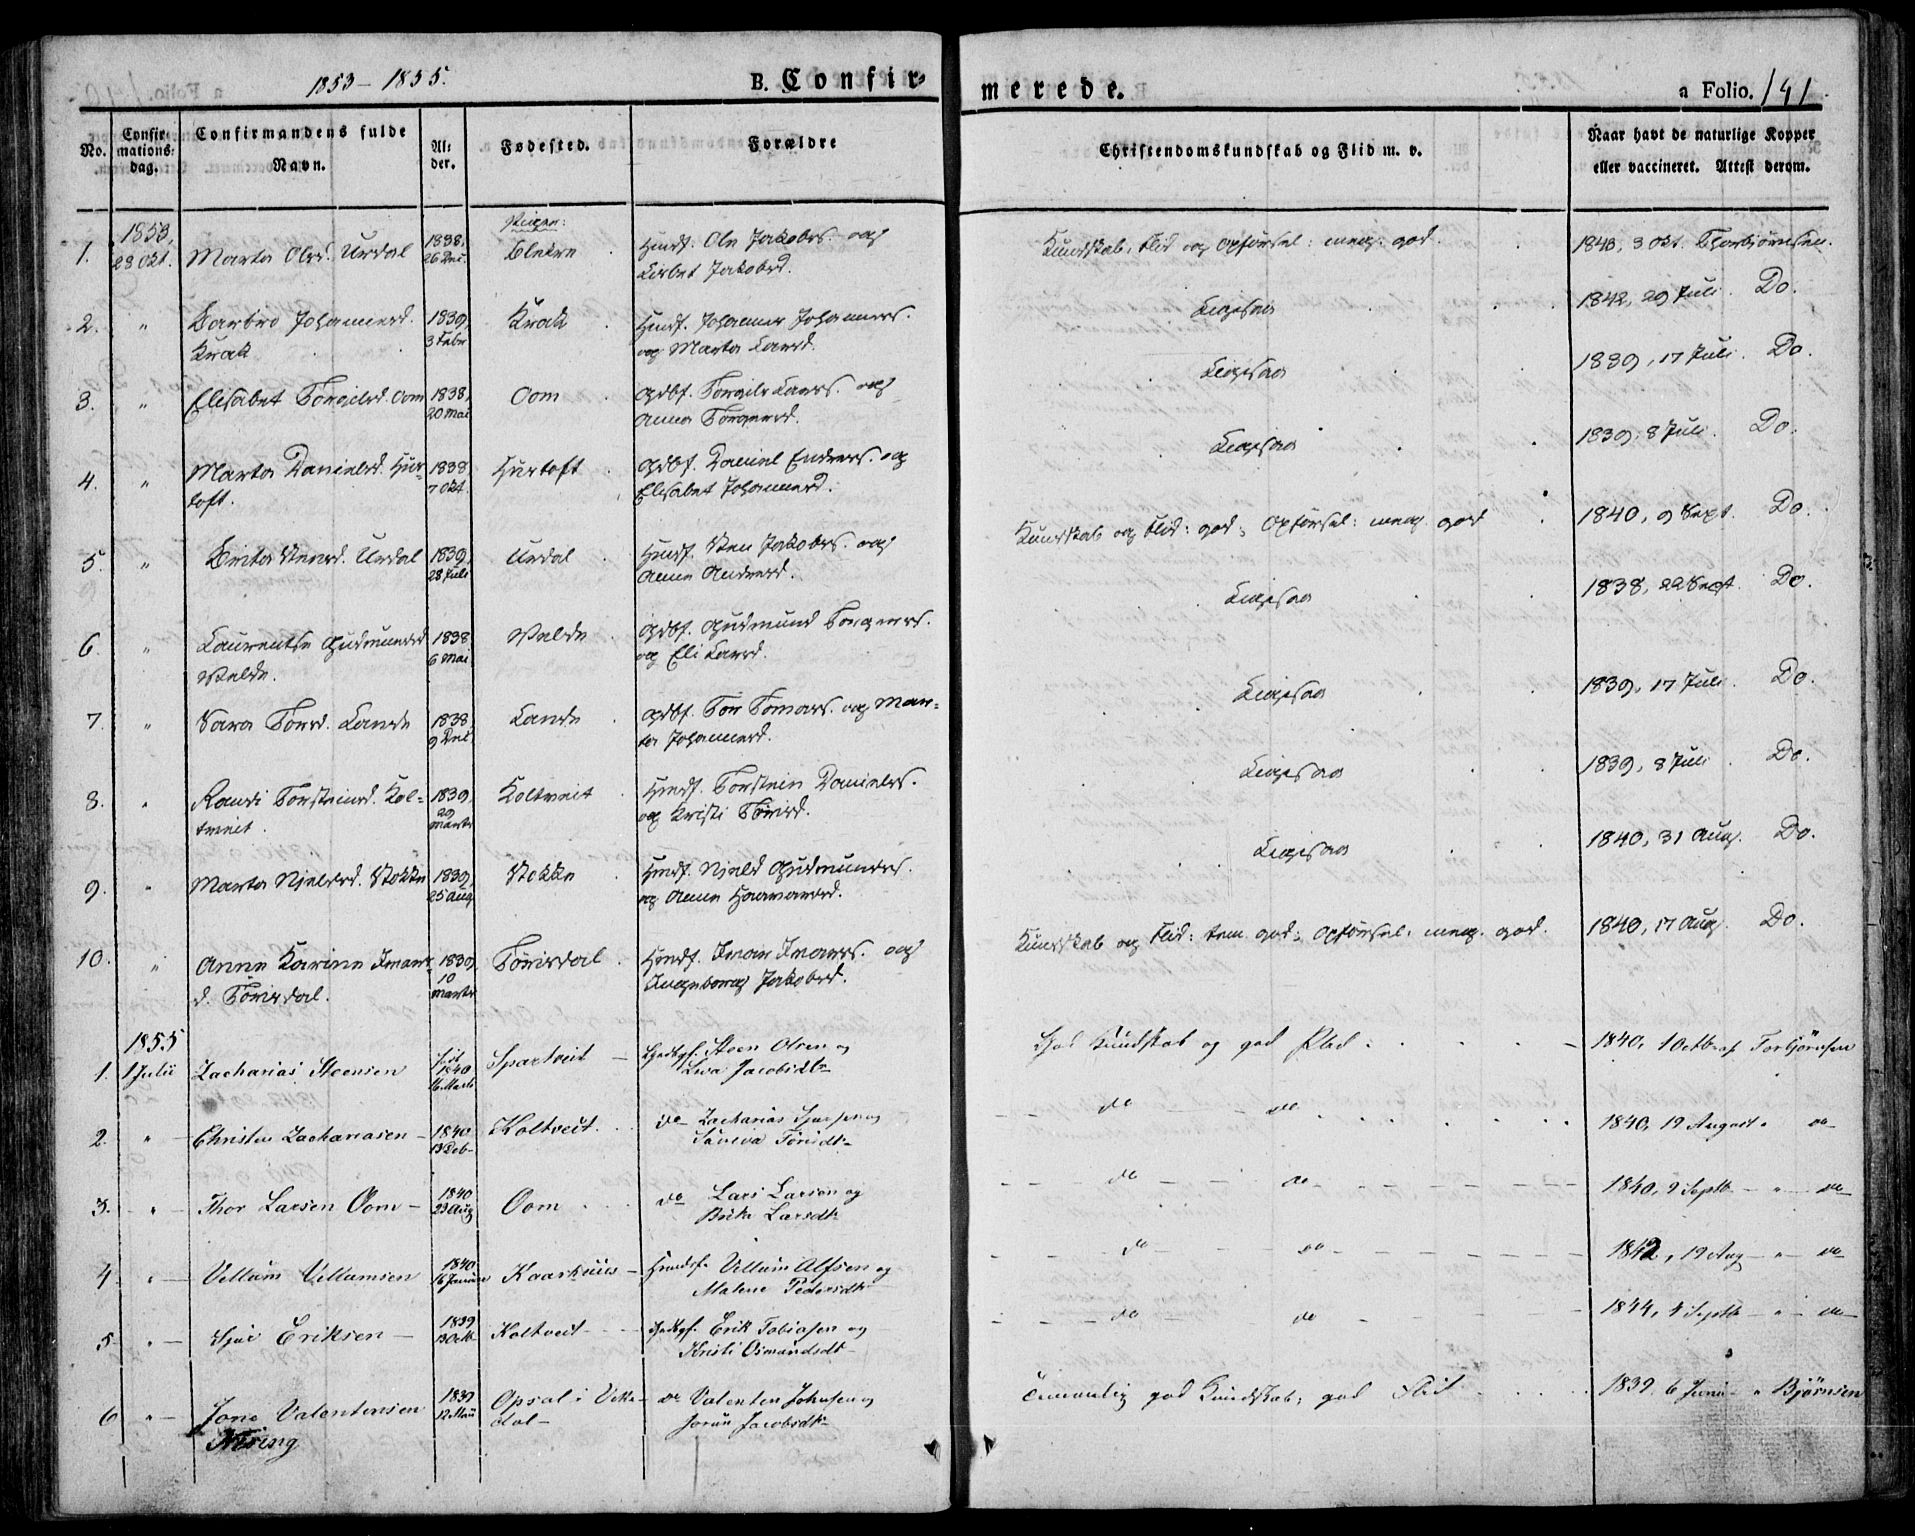 1853-1855.
B. Confir-
merede.
a Folio. 141
No.
Confir-
mations-
dag.
Confirmandens fulde
Navn.
Al-
der.
Fødested.
Forældre
Christendomskundskab og Flid m. v.
Naar havt de naturlige Kopper
eller vaccineret. Attest derom.
1. 1853, 23 Okt. Marta Olsd. Urdal 1838, 26 Dec. Husf. Ole Jakobs. og
Lisbet Jakobsd. Kundskab, Flid og Opførsel: meg. god. 1843, 3 Okt. Thorbjørnsen.
2. " Barbro Johannesd.
Krak 1839, 3 Febr Krak Husf. Johannes Johanness.
og Marta Larsd. Ligesaa 1842, 29 Juli. Do.
3. " Elisabet Torgilsd. Oom 1838, 20 Mai Oom Gdbf. Torgils Larss. og
Anna Torgersd. Ligesaa 1839, 17 Juli. Do.
4. " Marta Danielsd. Hus-
toft. 1838 7 Okt. Hustoft Gdbf. Daniel Endress. og
Elisabet Johannesd. Ligesaa 1839, 8 Juli. Do.
5. " Brita Stensd. Urdal 1839, 28 Juli Urdal Husf. Sten Jakobs. og
Anne Andersd. Kundskab og Flid: god; Opførsel: meg. god 1840, 9 Sept. Do.
6. " Laurentse Gudmundsd.
Valde. 1838 6 Mai Valde Gdbf. Gudmund Torgers.
og Eli Larsd. Ligesaa 1838, 22 Sept. Do.
7. " Sara Torsd. Lande 1838 9 Dec. Lande Gdbf. Tor Tomass. og Mar-
ta Johannesd. Ligesaa 1839, 17 Juli. Do.
8. " Randi Torsteinsd. Kol-
tveit. 1839, 29 Marts Koltveit Husf. Torstein Daniels.
og Kristi Torisd. Ligesaa 1839, 8 Juli. Do.
9. " Marta Njeldsd. Stokke 1839, 25 Aug Stokke Husf. Njeld Gudmunds.
og Anne Haavardsd. Ligesaa 1840, 31 Aug. Do.
10. " Anne Karine Ivars-
d. Torisdal. 1839, 10 Marts Torisdal Husf. Ivar Ivars. og
Ingeborg Jakobsd. Kundskab og Flid: tem. god; Opførsel: meg. god. 1840, 17 Aug. Do.
1. 1855 1 Julii Zacharias Steensen 1840 16 Marts Spartveit Steen Olsen og
Jacobsdtr God Kundskab og god Flid 1840, 1 Octbr af Torbjørnsen
2. " Christen Zachariasen 1840 13 Deb- Koltveit. do Zacharias og
do do 1840, 19 August " do
3. " Thor Larsen Oom 1840 23 Aug Oom do Lars Larsen og
Larsdtr do do 1840, 9 Septb " do
4 " Vellum Vellumsen 1840 Vellum Alfsen og
Malene Pedersdtr do do 1842, 19 Aug " do
5 " Eriksen 1839 13 Octb Koltveit Erik Tobiasen og
Kristi Osmundsdtr do do 1844, 4 Septb " do
6 " Jone Valentinsen
1839 12 Opsal i Vikke-
dal do Valenten Johnsen og
Jorun Jacobsdtr Temmelig god Kundskab; god Flid 1839 6 Juni " Bjørnsen